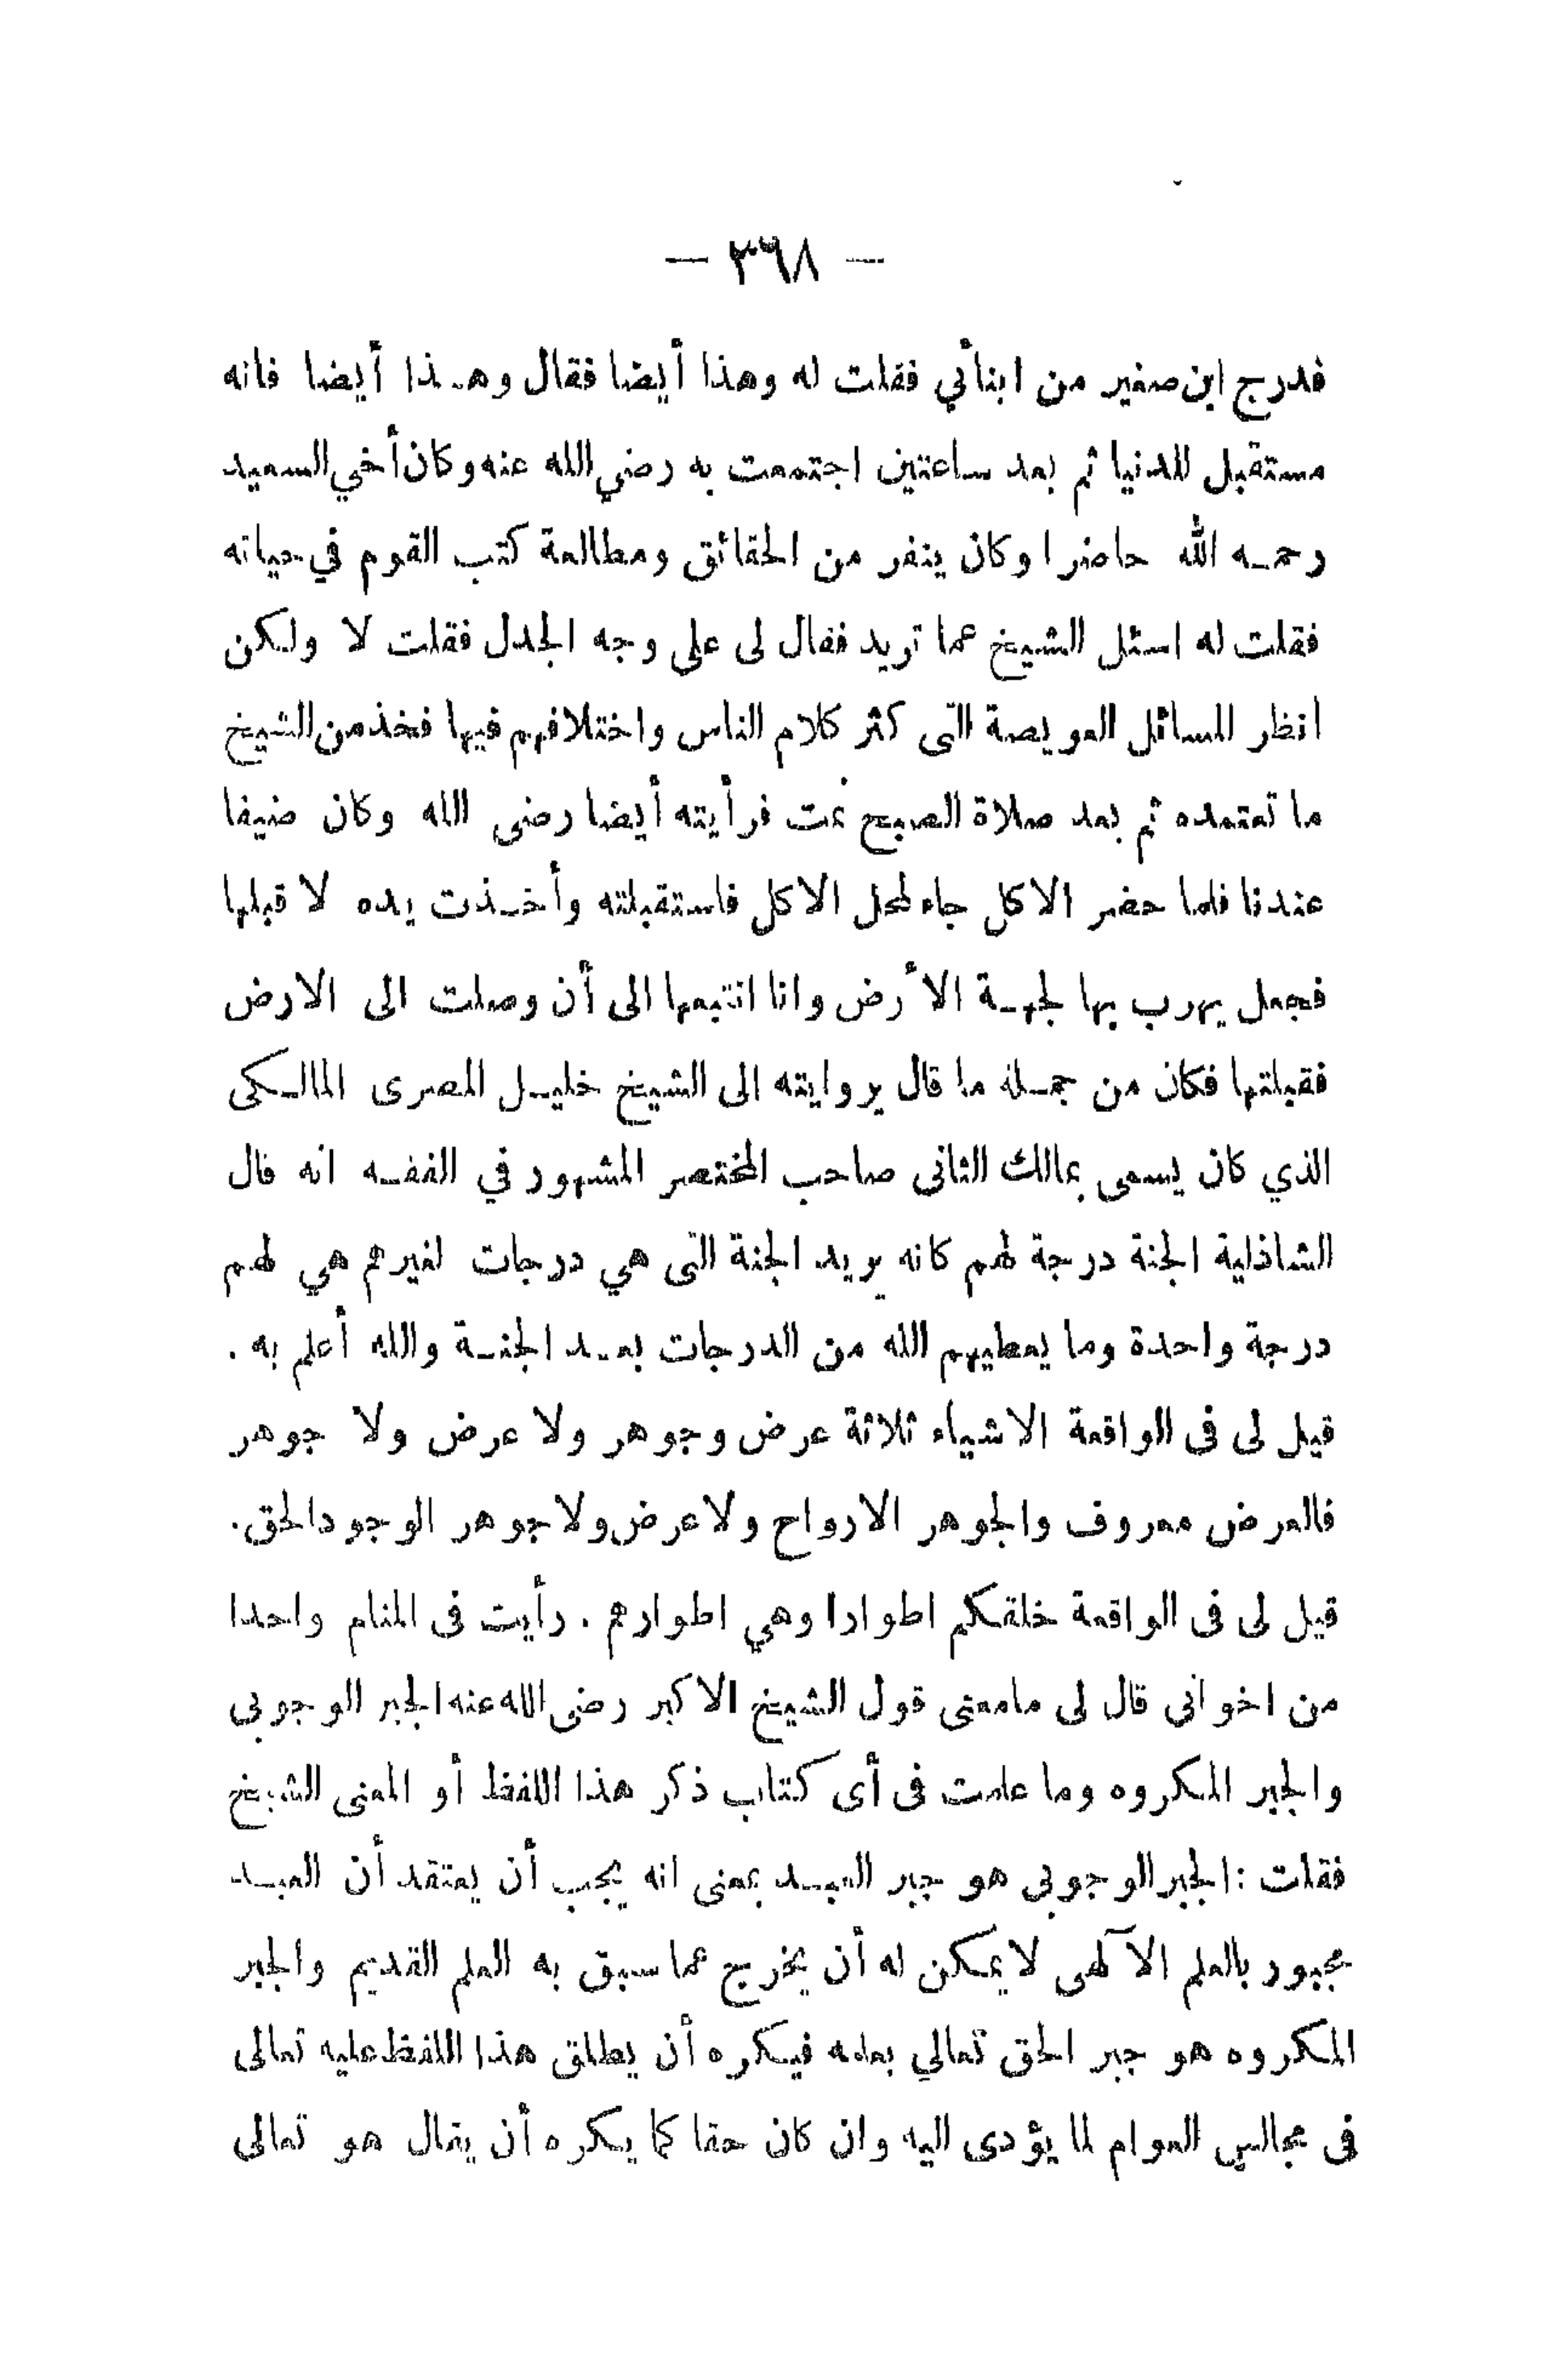 — ٣٦٨ —
فدرج ابن صغير من ابنائي فقلت له وهذا أيضا فقال وهذا أيضا فانه
مستقبل للدنيا ثم بعد ساعتين اجتمعت به رضي الله عنه وكان أخي السعيد
رحمه الله حاضرا وكان ينفر من الحقائق ومطالعة كتب القوم في حياته
فقلت له اسئل الشيخ عما تريد فقال لى على وجه الجدل فقلت لا ولكن
انظر المسائل العويصة التى كثر كلام الناس واختلافهم فيها فخذ من الشيخ
ما تعتمده ثم بعد صلاة الصبح نمت فرأيته أيضا رضى الله وكان ضيفا
عندنا فلما حضر الاكل جاء لمحل الاكل فاستقبلته وأخذت يده لاقبلها
فجعل يهرب بها لجهة الأرض وانا اتتبعها الى أن وصلت الى الارض
فقبلتها فكان من جملة ما قال بروايته الى الشيخ خليل المصرى المالكى
الذي كان يسمى بمالك الثانى صاحب المختصر المشهور في الفقه انه قال
الشاذلية الجنة درجة لهم كانه يريد الجنة التى هي درجات لغيرهم هي لهم
درجة واحدة وما يعطيهم الله من الدرجات بعد الجنة والله أعلم به .
قيل لى فى الواقعة الاشياء ثلاثة عرض وجوهر ولا عرض ولا جوهر
فالعرض معروف والجوهر الارواح ولا عرض ولا جوهر الوجود الحق.
قيل لى فى الواقعة خلقكم اطوارا وهي اطوارهم . رأيت فى المنام واحدا
من اخوانى قال لى مامعنى قول الشيخ الاكبر رضى الله عنه الجبر الوجوبى
والجبر المكروه وما علمت فى أى كتاب ذكر هذا اللفظ أو المعنى الشيخ
فقلت : الجبر الوجوبى هو جبر العبد بمعنى انه يجب أن يعتقد أن العبد
مجبور بالعلم الآلهى لا يمكن له أن يخرج عما سبق به العلم القديم والجبر
المكروه هو جبر الحق تعالي بعلمه فيكره أن يطلق هذا اللفظ عليه تعالى
فى مجالس العوام لما يؤدى اليه وان كان حقا كما يكره أن يقال هو تعالى